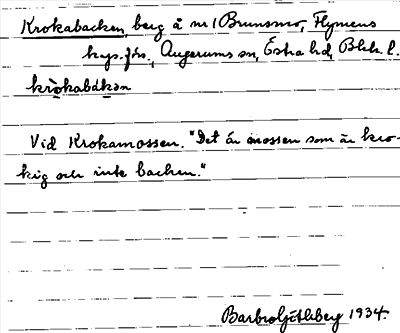 Krokabacken, berg å nr 1 Brunsmo, Flymens
kap. förs., Augerums sn, Östra hd, Blek. l.
krò̱kabákən
Vid Krokamossen. "Det är mossen som är kro-
kig och inte backen."
1934.